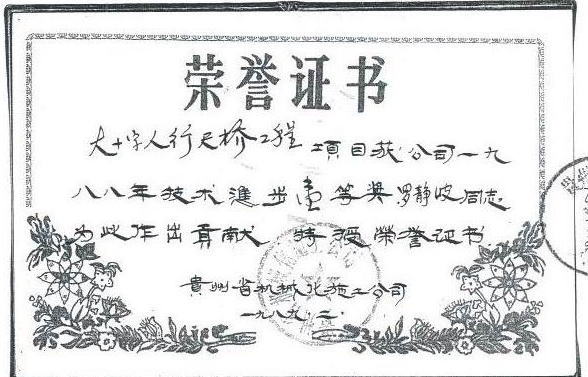 荣誉证书
大十字人行天桥工程項目获公司一九
八八年技术進步壹等奖罗静波同志
为此作出貢献 特授榮誉证书
貴州省机械化施工公司
一九八九.二.